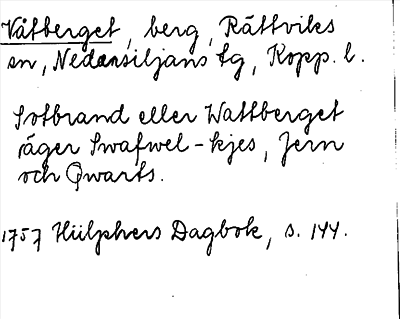 Våtberget, berg, Rättviks
sn, Nedansiljans tg, Kopp. l.
Sotbrand eller Wattberget
äger Swafwel-kjes, Jern
och Qwarts.
1757 Hülphers Dagbok, s. 144.